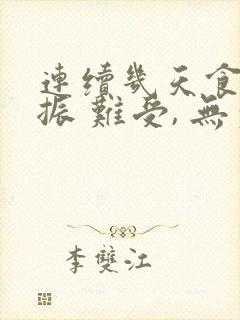 連續幾天食
振難受,無
李雙江